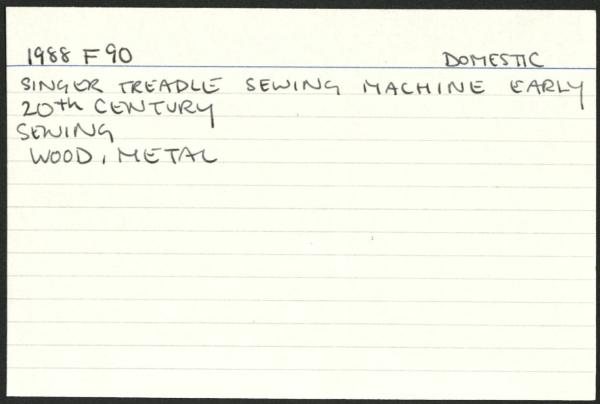 1988 F 90 DOMESTIC
SINGER TREADLE SEWING MACHINE EARLY
20th CENTURY
SEWING
WOOD, METAL